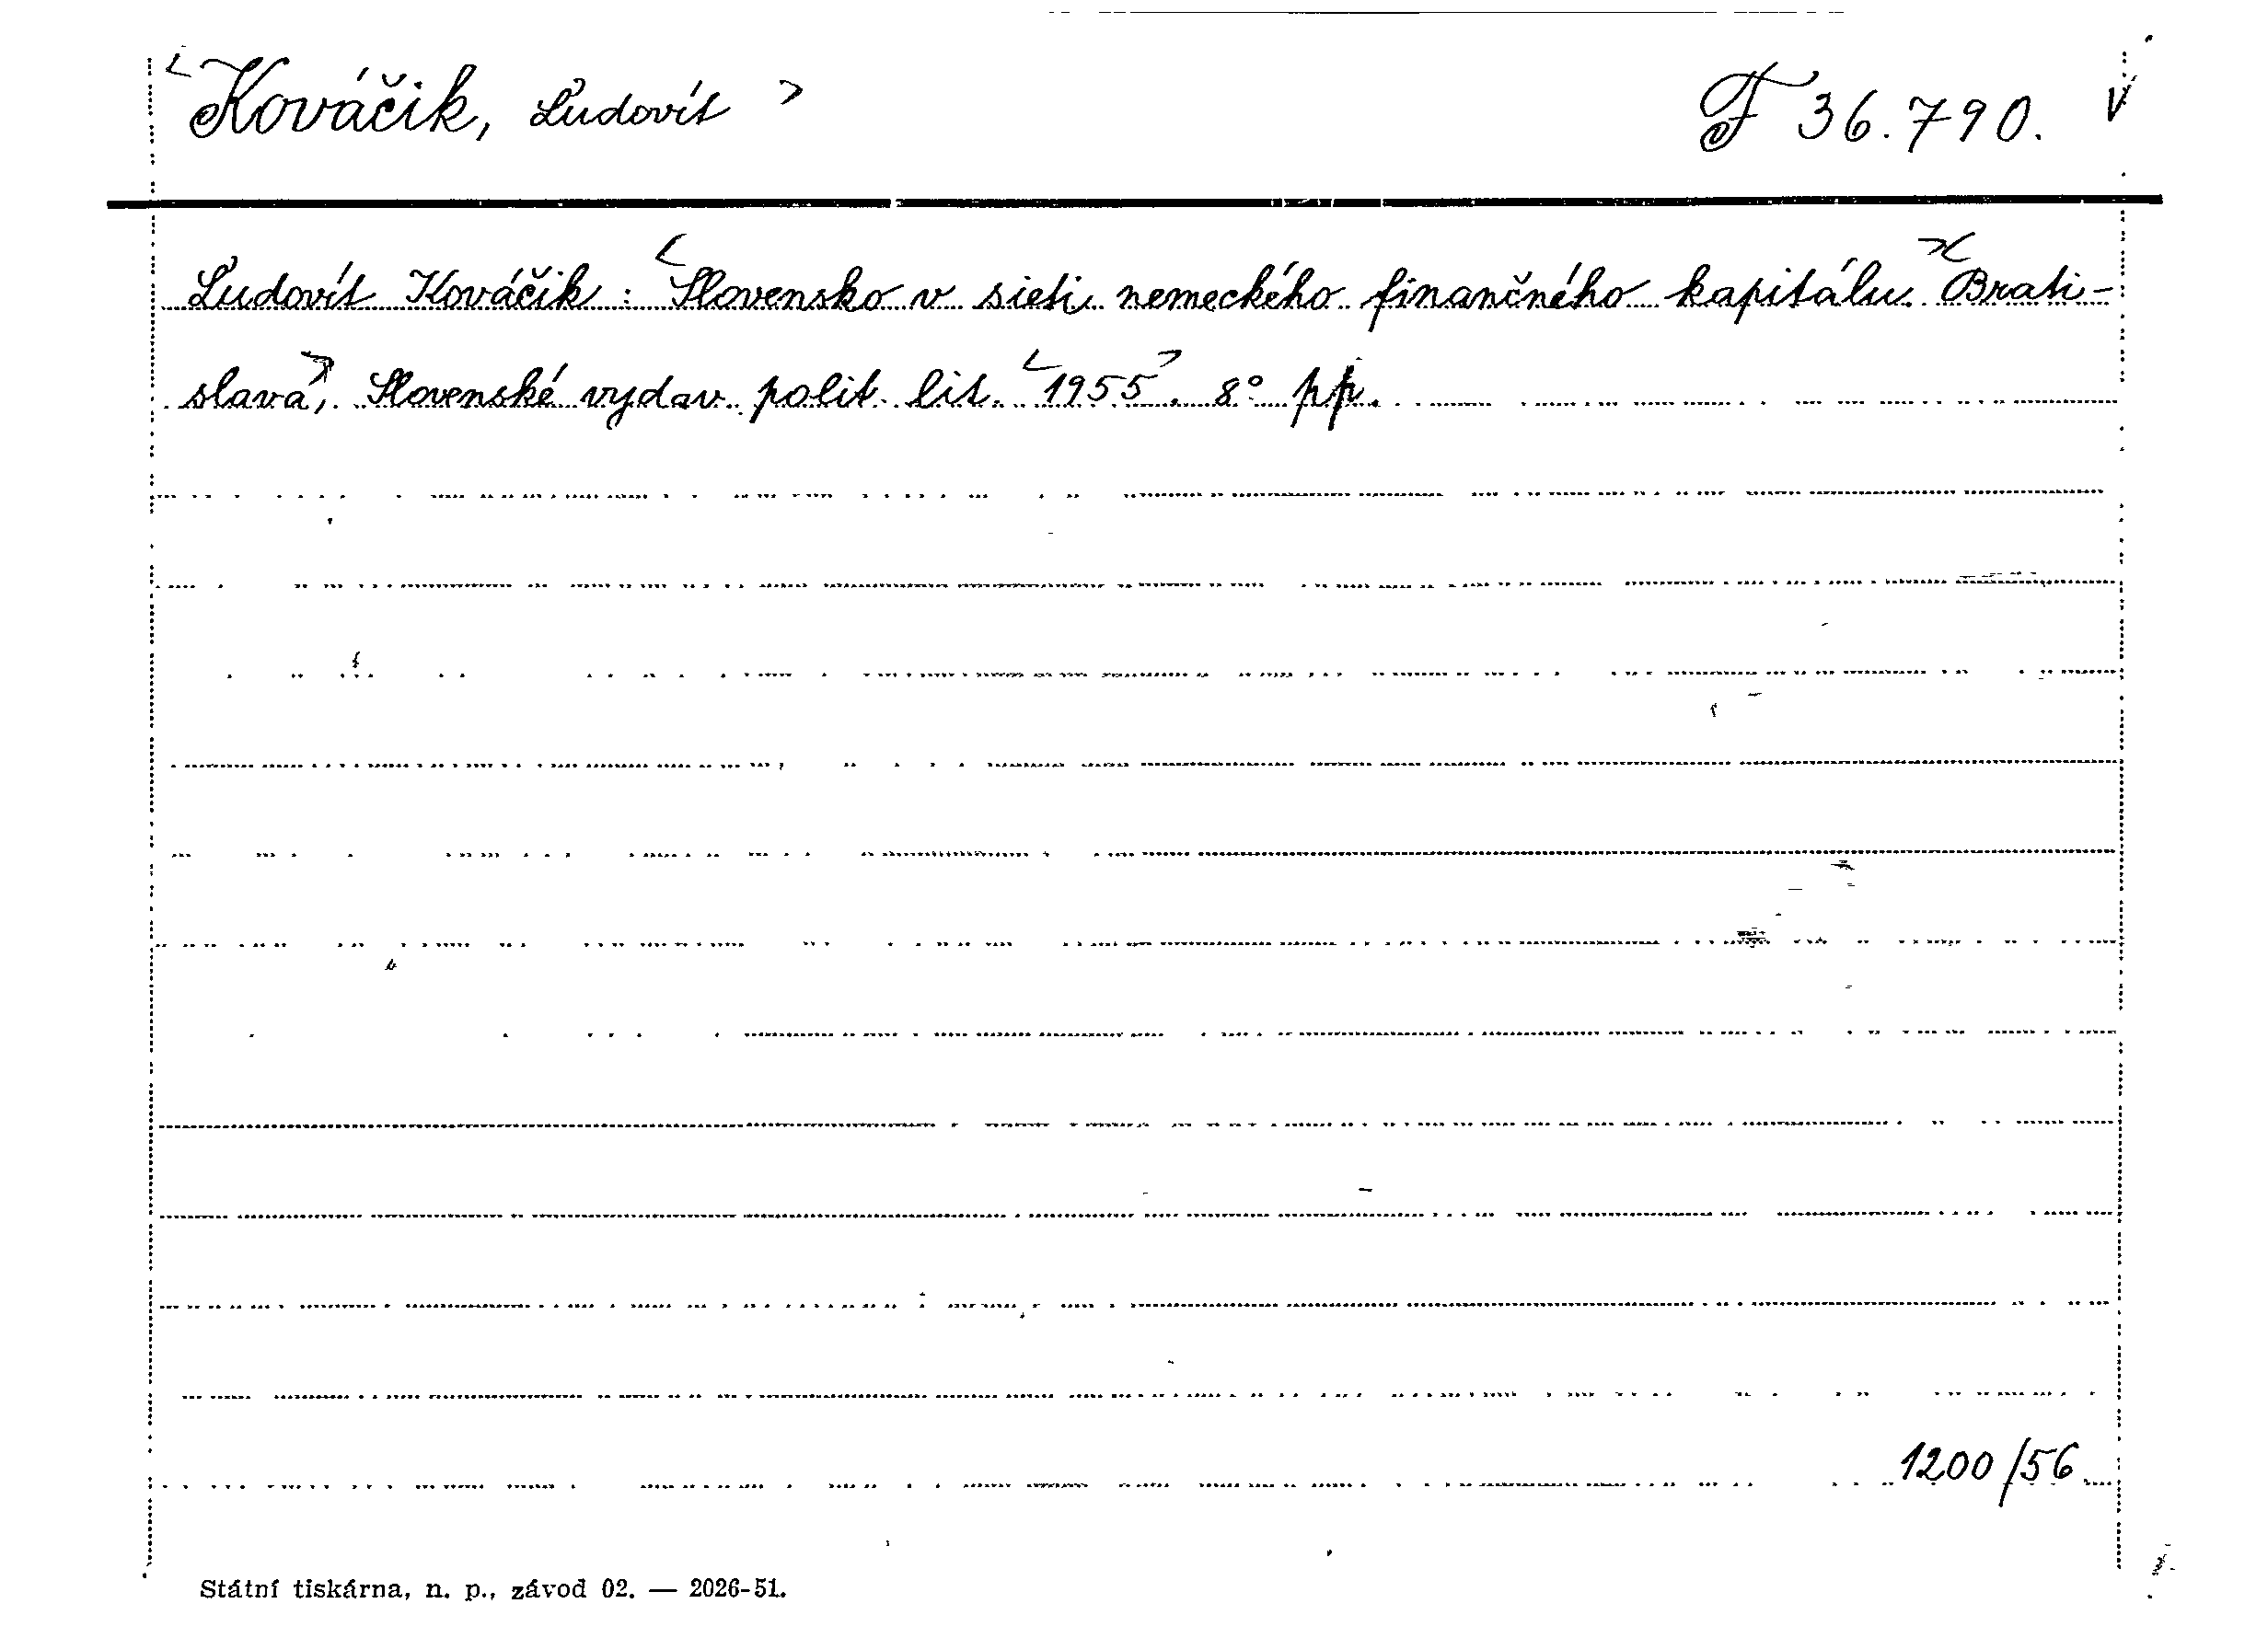 Kováčik, Ľudovít F 36.790. V
Ľudovít Kováčik : Slovensko v sieti nemeckého finančného kapitálu. Brati-
slava, Slovenské vydav. polit. lit. 1955. 8° pp.
1200/56
Státní tiskárna, n. p., závod 02. — 2026-51.